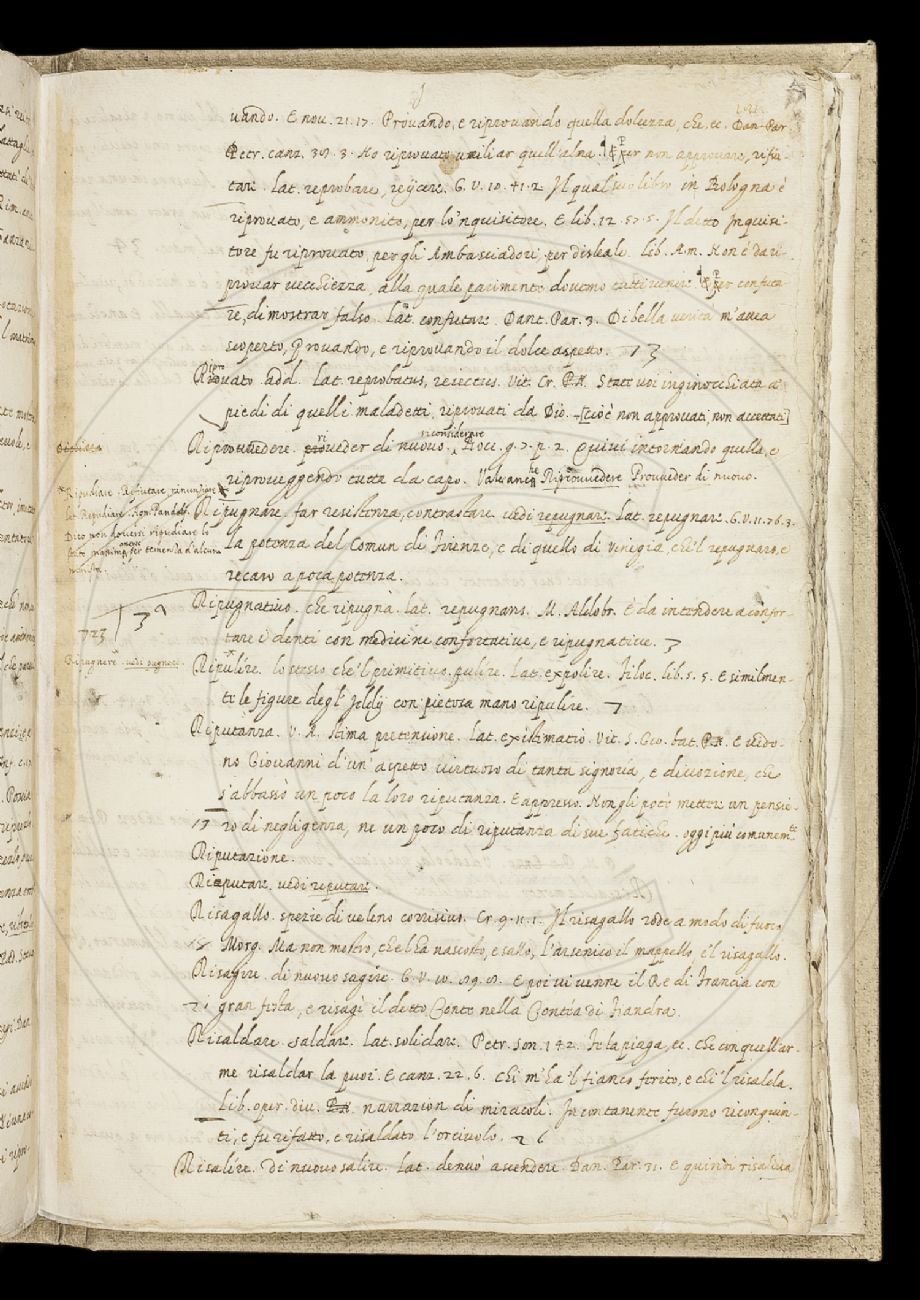 uando. E nou. 21. 17. Prouando, e riprouando quella dolcezza, che, ec. Dan. Par.
Petr. canz. 39. 3. Ho riprouato umiliar quell'alma. Per non approuare, rifiu-
tare. lat. reprobare, reijcere. G. V. 10. 41. 2. Il qual suo libro in Bologna è
riprouato, e ammonito, per lo'nquisitore. E lib. 12. 57. 5. Il detto Inquisi-
tore fu riprouato, per gli Ambasciadori, per disleale. lib. Am. Non è da ri-
prouar uecchiezza, alla quale parimente douemo tutti uenire. Per confuta-
re, dimostrar falso. lat. confutare. Dant. Par. 3. Di bella uerità m'auea
scoperto, Prouando, e riprouando il dolce aspetto. 13
Riprouato. add. lat. reprobatus, reiectus. Vit. Cr. P.N. State uoi inginocchiata a'
piedi di quelli maladetti, riprouati da Dio. [cioè non approuati, non accettati]
Riprouuedere. riueder di nuouo. riconsiderare. Bocc. g. 7. p. 2. Quiui intorniando quella, e
riproueggendo tutta da capo. Vale anche Riprouuedere Proueder di nuouo.
Ripudiare. Rifiutare, rinunziare
lat. Repudiare. Agn. Pandolf.
Dico non douersi ripudiare lo
Ripugnare. far resistenza, contrastare. uedi repugnare. lat. repugnare. G. V. 11. 76. 3.
la potenza del Comun di Firenze, e di quello di Vinegia, che'l repugnaro, e
recaro a poca potenza.
Ripugnatiuo. che ripugna. lat. repugnans. M. Aldobr. È da intendere a confor-
723 | 3
tare i denti con medicine confortatiue, e ripugnatiue. 3
Ripugnere. uedi pugnere.
Ripulire. lo stesso che'l primitiuo, pulire. lat. expolire. Filoc. lib. 5. 5. E similmen-
te le figure degl' Iddij con pietosa mano ripulire. 7
Riputanza. V. A. stima pretensione. lat. existimatio. Vit. S. Gio. bat. P.N. E uido-
no Giouanni d'un' aspetto uirtuoso di tanta signoria, e diuozione, che
s'abbassò un poco la loro riputanza. E appresso. Non gli potè mettere un pensie-
17 ro di negligenza, ne un poco di riputanza di sue fatiche. oggi più comunem.te
Riputazione.
Riputare, uedi reputare.
Risagallo. spezie di ueleno corrosiuo. Cr. 9. 11. 1. Il risagallo rode a modo di fuoco
Morg. Ma non mostro, che l'ha nascosto, e sallo, l'arsenico il nappello, e'l risagallo.
Risagire. di nuouo sagire. G. V. 10. 89. 8. E poi ui uenne il Re di Francia con
21 gran festa, e risagì il detto Conte nella Contea di Fiandra.
Risaldare. saldare. lat. solidare. Petr. son. 142. Fe la piaga, ec. Che con quell'ar-
me risaldar la puoi. E canz. 22. 6. Chi m'ha'l fianco ferito, e chi'l risalda.
Lib. oper. diu. P.N. narrazion di miracoli. Incontanente furono ricongiun-
ti, e fu rifatto, e risaldato l'orciuolo. 26
Risalire. Di nuouo salire. lat. denuò ascendere. Dan. Par. 31. E quindi risaliua